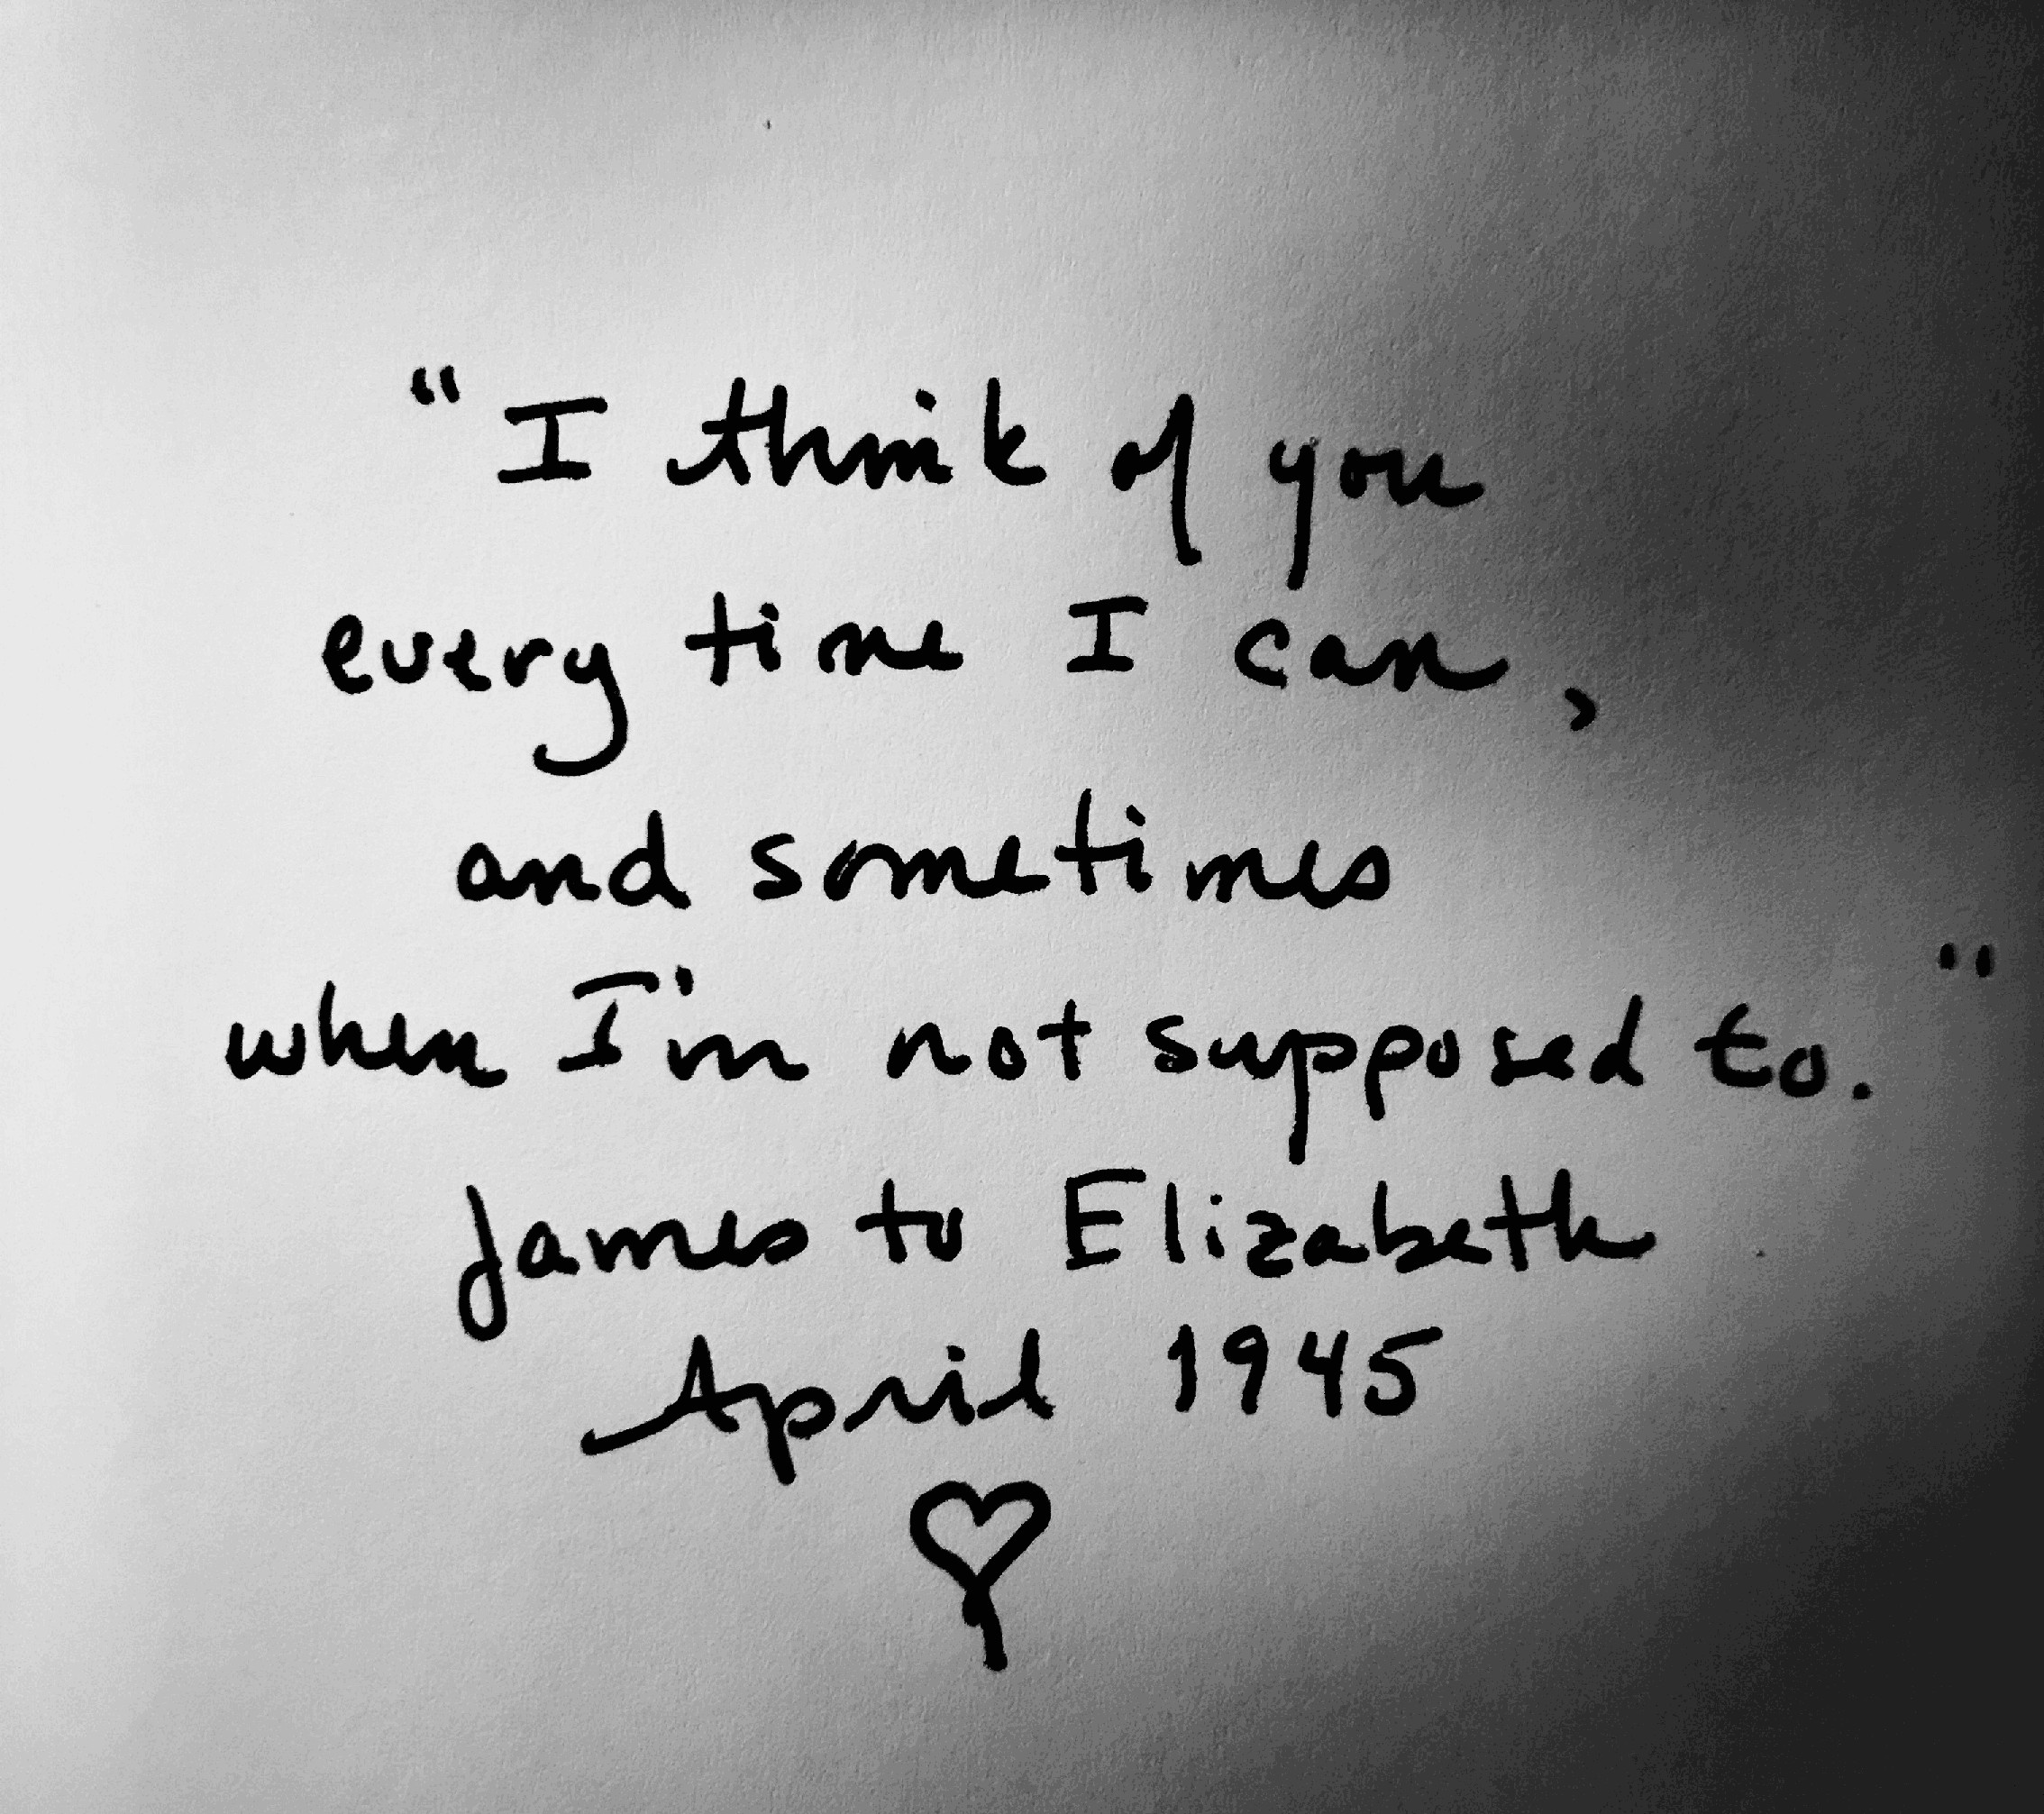 "I think of you
every time I can,
and sometimes
when I'm not supposed to."
James to Elizabeth
April 1945